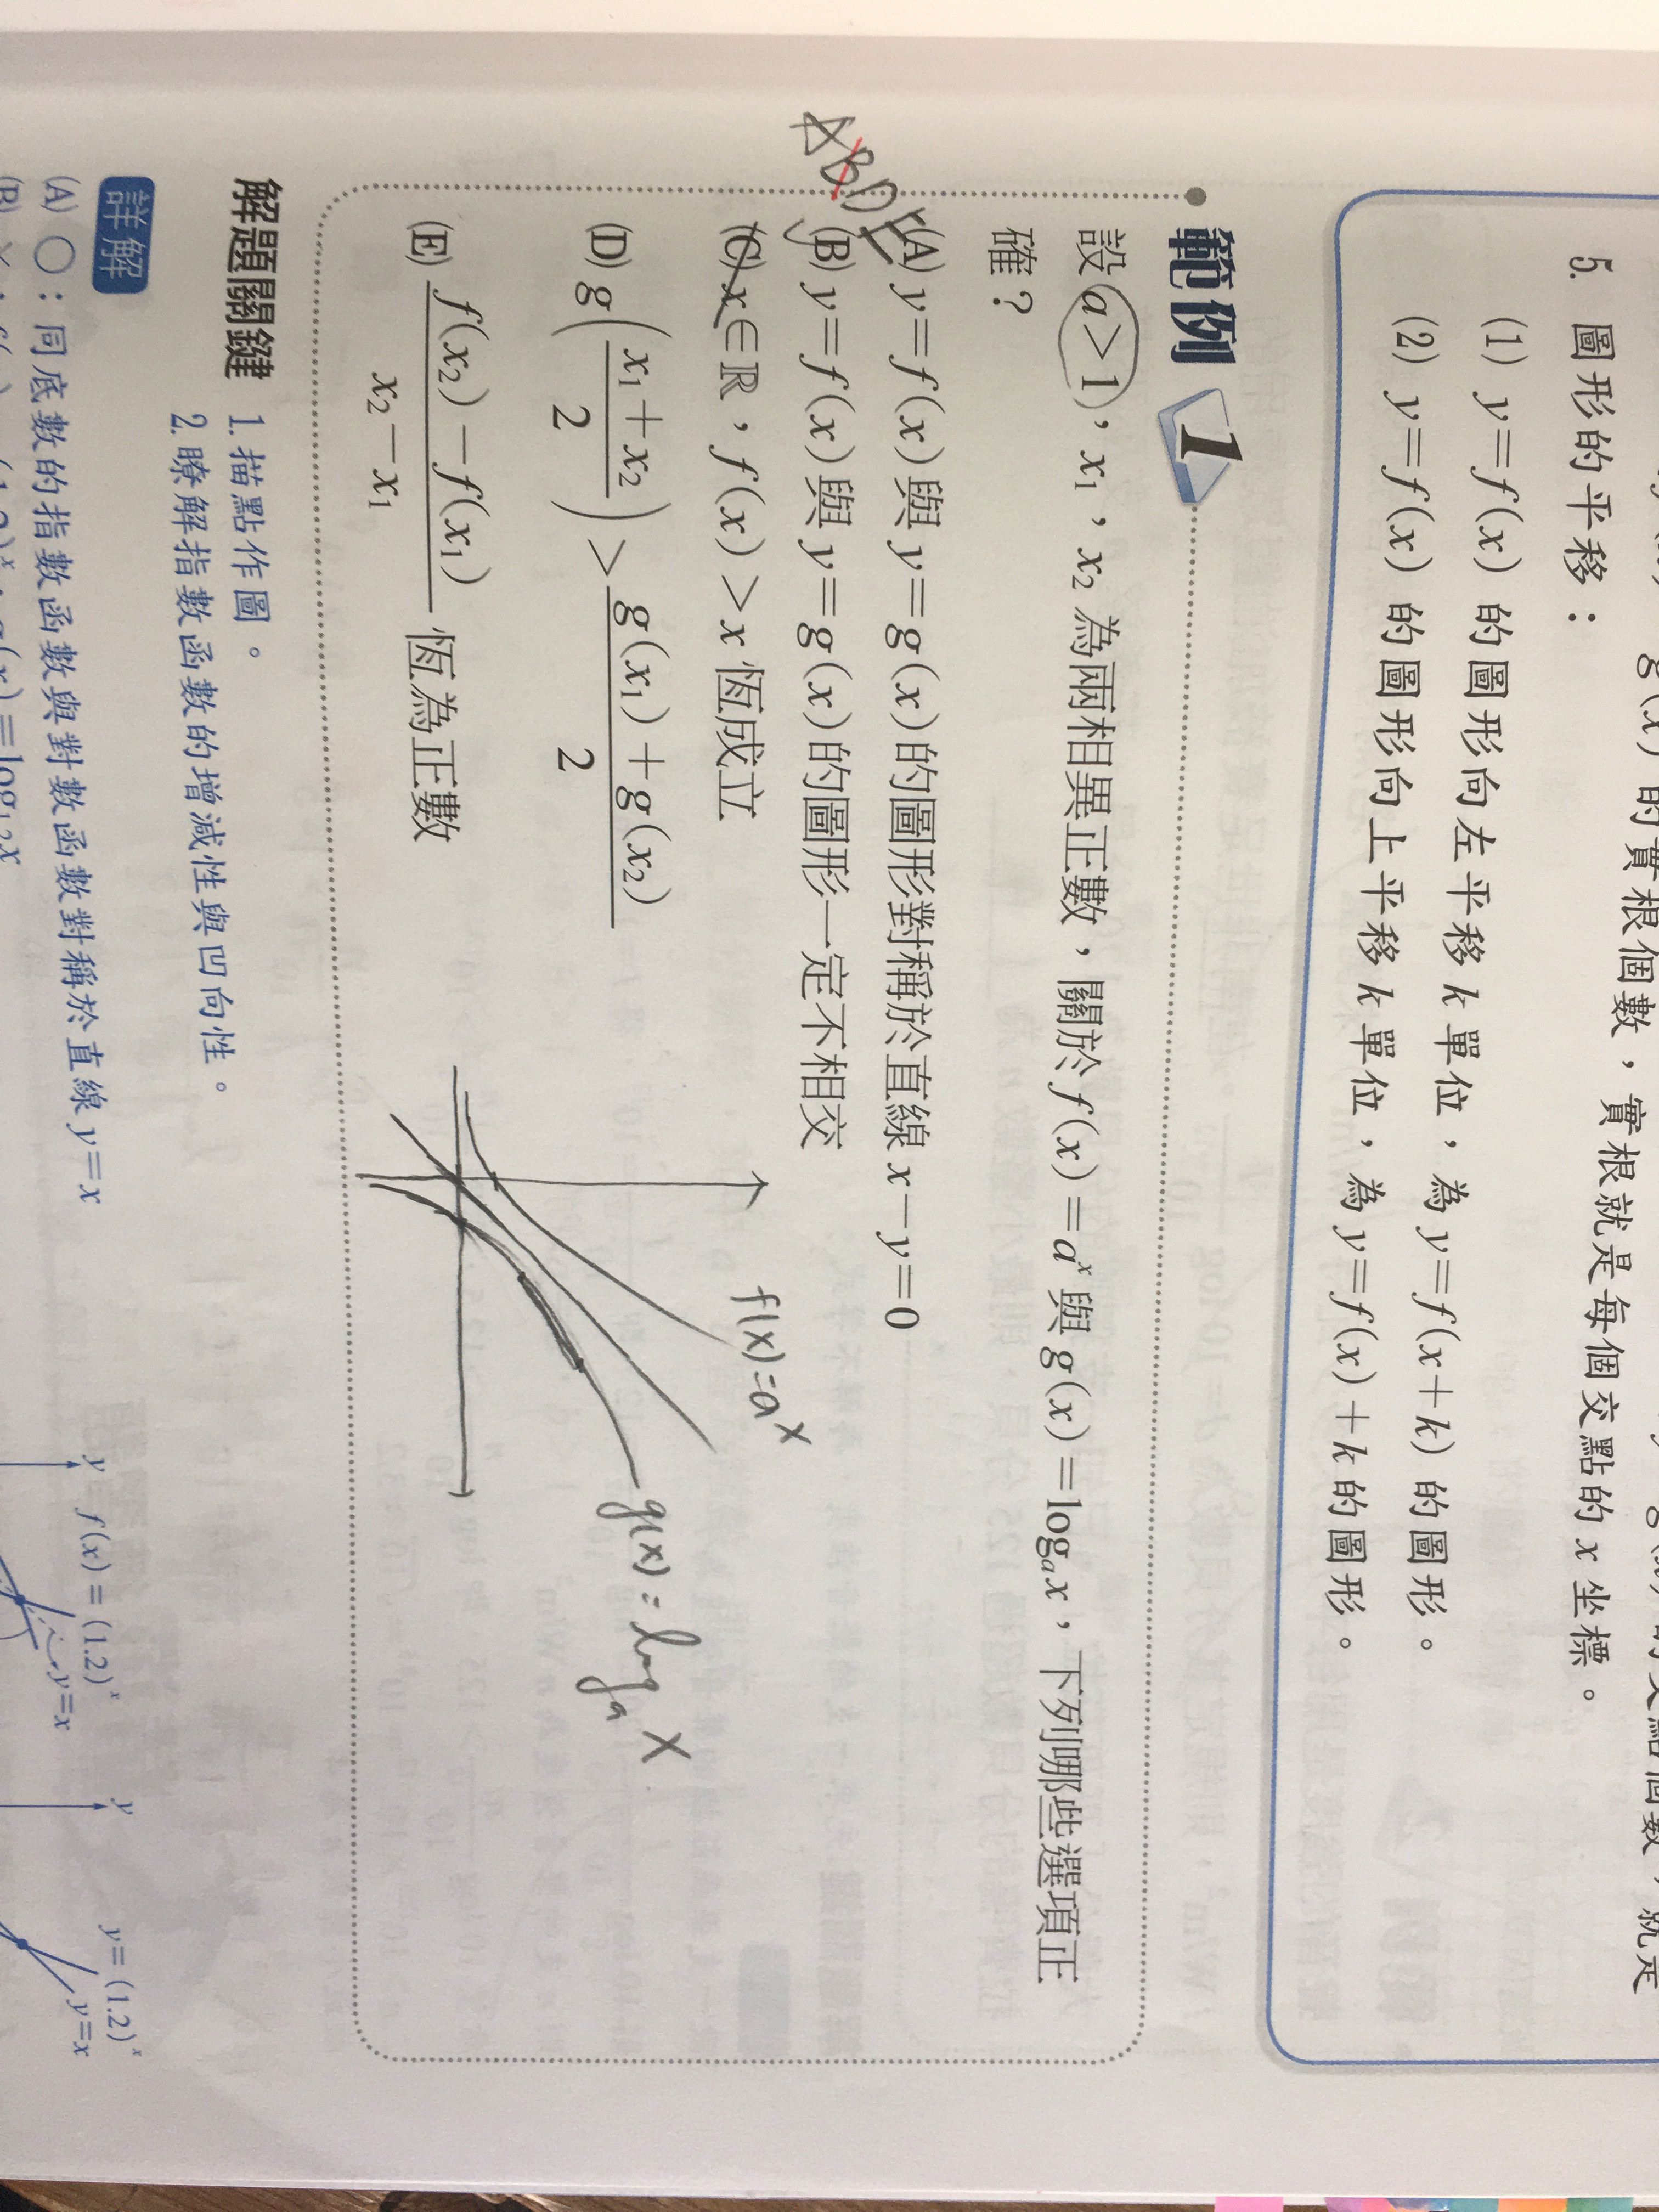 g(x) 的實根個數，就是
5. 圖形的平移：
實根就是每個交點的 x 坐標。
(1) y=f(x) 的圖形向左平移 k 單位，為 y=f(x+k) 的圖形。
(2) y=f(x) 的圖形向上平移 k 單位，為 y=f(x)+k 的圖形。
範例 1
設 a>1，x₁，x₂ 為兩相異正數，關於 f(x)=aˣ 與 g(x)=logₐx，下列哪些選項正
確？
(A) y=f(x) 與 y=g(x) 的圖形對稱於直線 x-y=0
(B) y=f(x) 與 y=g(x) 的圖形一定不相交
(C) x∈ℝ，f(x)>x 恆成立
(D) g((x₁+x₂)/2) > (g(x₁)+g(x₂))/2
(E) (f(x₂)-f(x₁))/(x₂-x₁) 恆為正數
ABDE
f(x)=aˣ
g(x)=logₐx
解題關鍵 1. 描點作圖。
2. 瞭解指數函數的增減性與凹向性。
詳解
(A) ○：同底數的指數函數與對數函數對稱於直線 y=x
y f(x)=(1.2)ˣ
y=x
y
y=(1.2)ˣ
y=x
g(x)=log₁.₂x